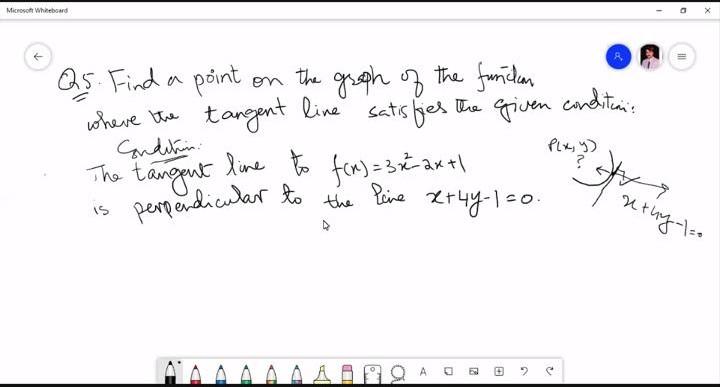 Microsoft Whiteboard
Q5. Find a point on the graph of the function
where the tangent line satisfies the given condition:
Condition:
The tangent line to f(x) = 3x² - 2x + 1
is perpendicular to the line x + 4y - 1 = 0.
P(x, y)
?
x + 4y - 1 = 0
A